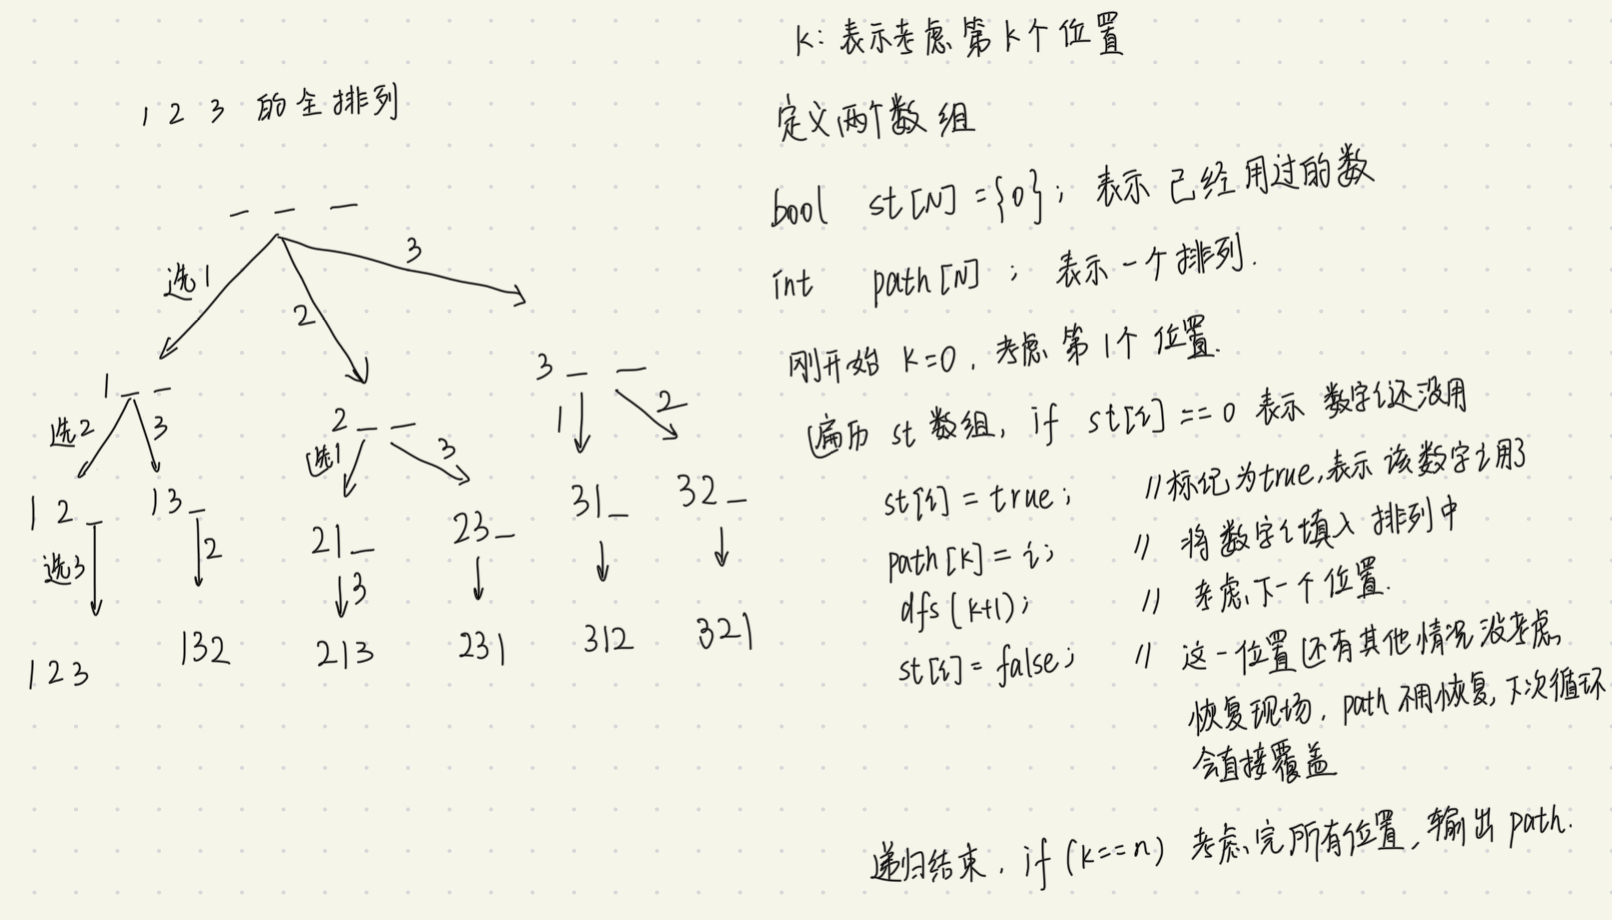 1 2 3 的全排列
— — —
选1
2
3
1 — —
2 — —
3 — —
选2
3
选1
3
1
2
1 2 _
1 3 _
21_
23_
31_
32_
选3
2
3
123
132
213
231
312
321
k: 表示考虑第k个位置
定义两个数组
bool st[N]={0}; 表示已经用过的数
int path[N]; 表示一个排列.
刚开始 k=0, 考虑第1个位置.
遍历 st 数组, if st[i]==0 表示 数字i还没用
st[i]=true; //标记为true,表示该数字i用了
path[k]=i; // 将数字i填入排列中
dfs(k+1); // 考虑下一个位置.
st[i]=false; // 这一位置还有其他情况没考虑,
恢复现场. path不用恢复, 下次循环
会直接覆盖
递归结束. if (k==n) 考虑完所有位置, 输出 path.